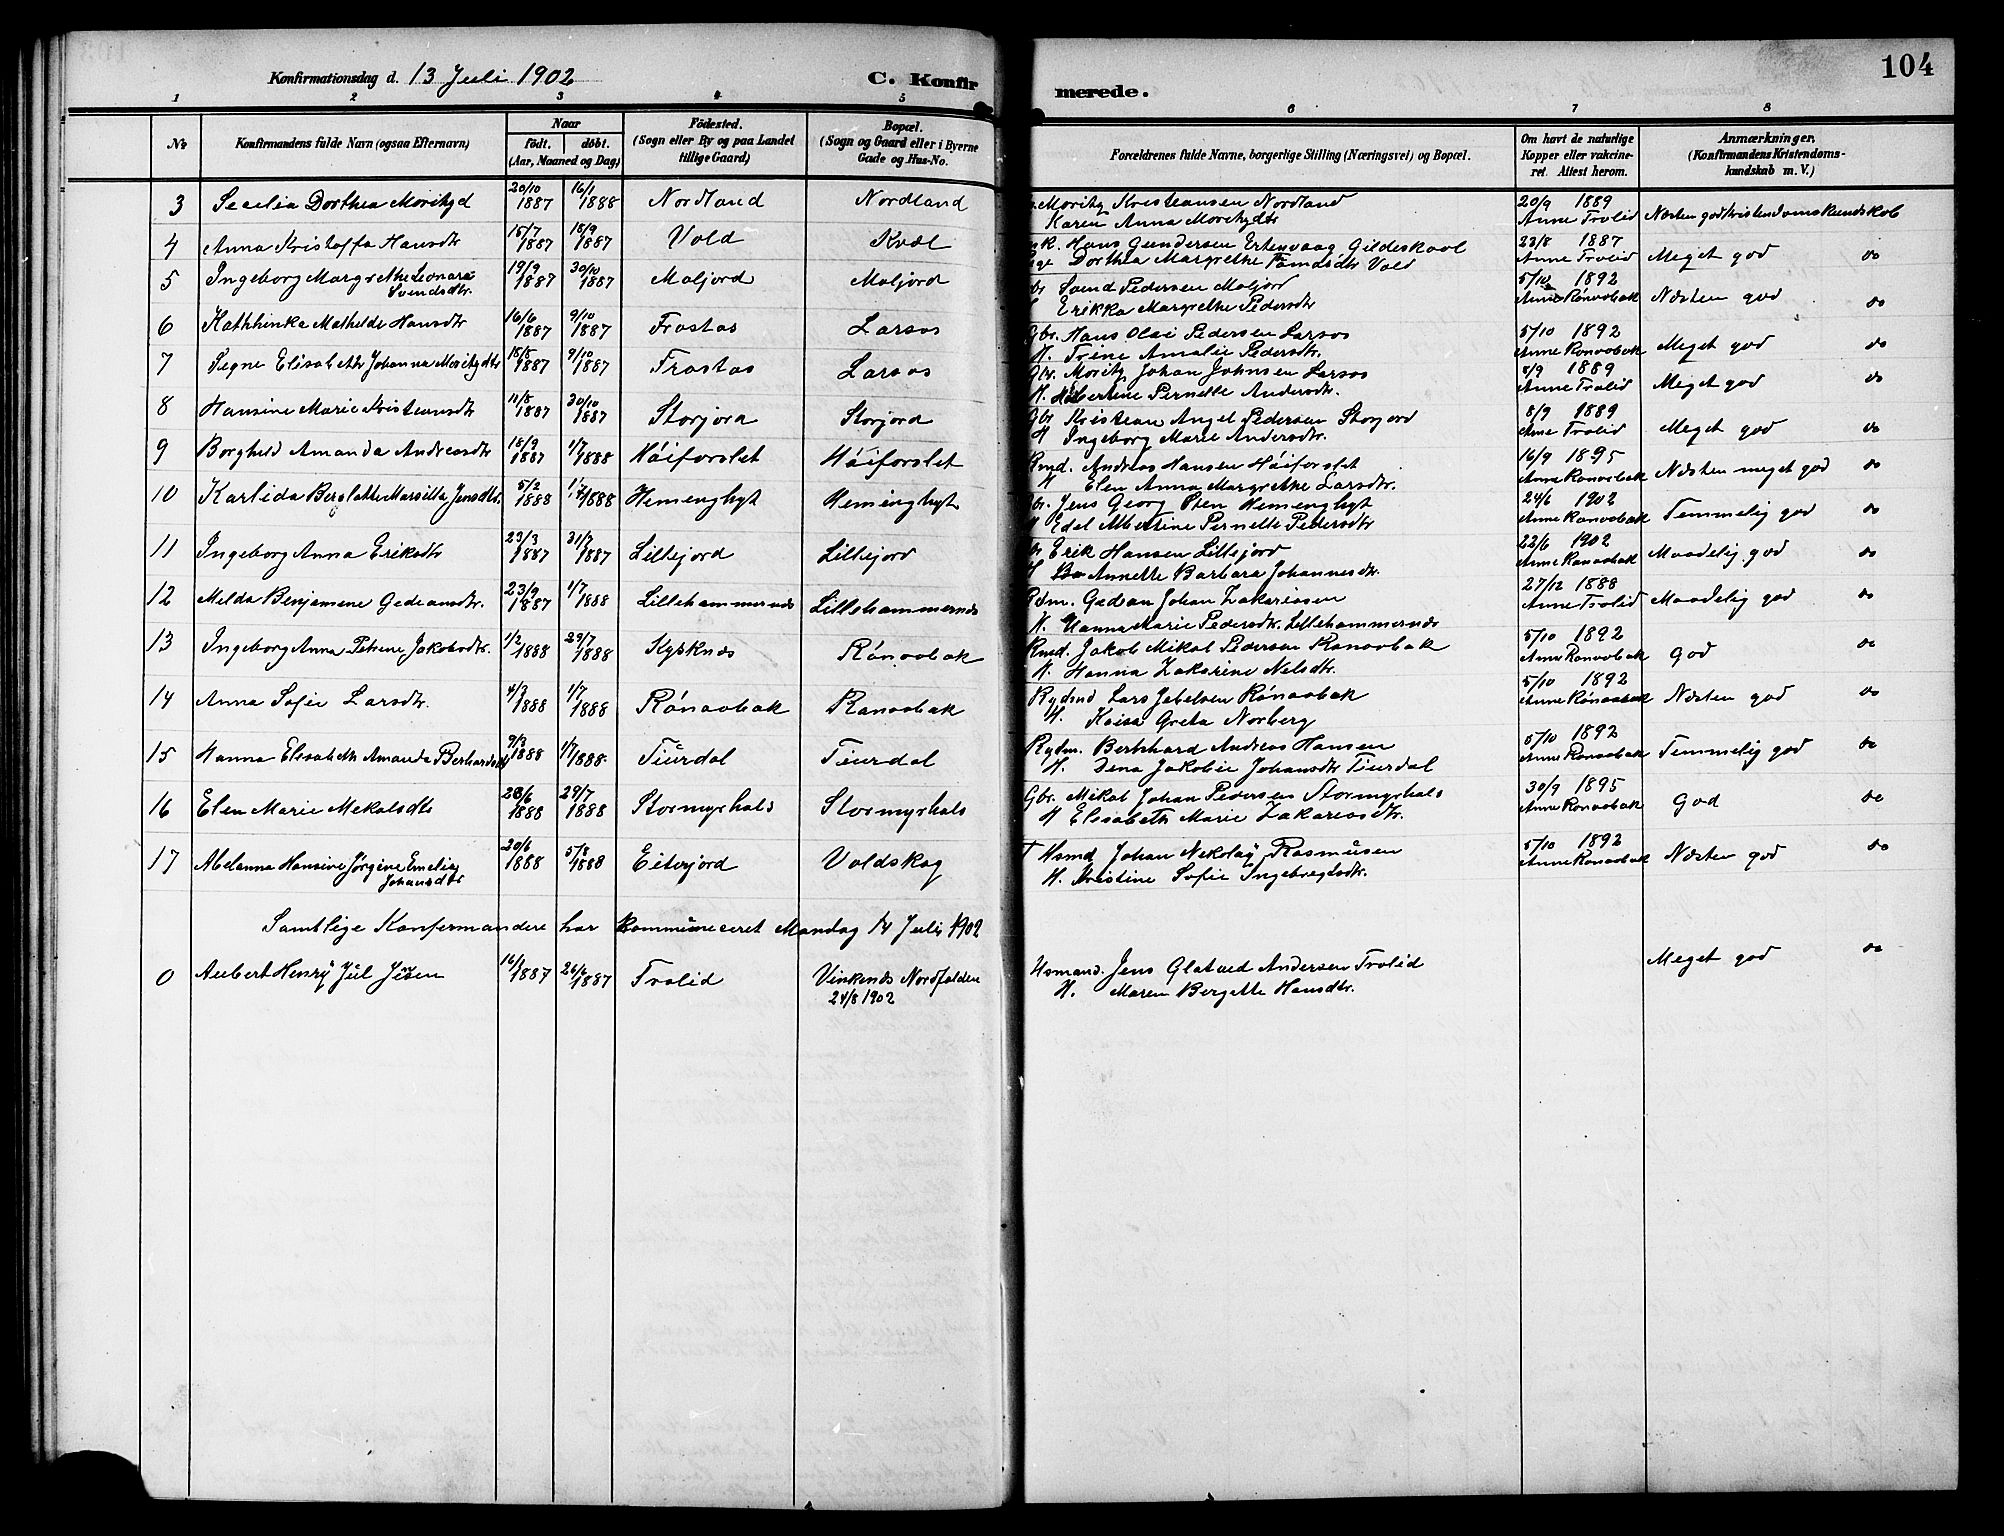 104
Konfirmationsdag d. 13 Juli 1902 C. Konfirmerede.
1 2 3 4 5 6 7 8
No Konfirmandens fulde Navn (ogsaa Efternavn) Naar født. døbt. (Aar, Maaned og Dag) Födested. (Sogn eller By og paa Landet tillige Gaard) Bopæl. (Sogn og Gaard eller i Byerne Gade og Hus-No. Forældrenes fulde Navne, borgerlige Stilling (Næringsvei) og Bopæl. Om havt de naturlige Kopper eller vakcineret. Attest herom. Anmærkninger, (Konfirmandens Kristendomskundskab m. V.)
3 Secelia Dorthea Moritzd 20/10 1887 16/1 1888 Nordland Nordland Moritz Kristeansen Nordland 20/9 1889
Karen Anna Moretzdtr Anne Trolid Næsten god kristendomskundskab
4 Anna Kristoffa Hansdtr 15/7 1887 18/9 1887 Vold Kvæl Hans Gundersen Ertenvaag Gildeskaal 23/8 1887
Dorthea Margrethe Vold Anne Trolid Meget god do
5 Ingeborg Margrethe Leonara Svendsdtr. 19/9 1887 30/10 1887 Moljord Moljord Svend Pedersen Moljord 5/10 1892
Erikka Margrethe Pedersdtr Anne Ronaabak Næsten god do
6 Kathhinka Mathilde Hansdtr 16/6 1887 9/10 1887 Frostas Larsos Gbr. Hans Olai Pedersen Larsos 5/10 1892
H. Trine Amalie Pedersdtr. Anne Ronaabak Meget god do
7 Segne Elisabeth Johanna Moritzdtr 18/8 1887 9/10 1887 Frostas Larsos Gbr. Moritz Johan Johnsen Larsos 8/9 1889
H. Albertine Pernelle Andersdtr. Anne Trolid Meget god do
8 Hansine Marie Kristeansdtr 11/8 1887 30/10 1887 Storjora Storjora Gbr Kristean Angel Pedersen Storjord 8/9 1889
H Ingeborg Marie Andersdtr. Anne Trolid Meget god do
9 Borghild Amanda Andreasdtr 18/9 1887 1/7 1888 Höiforslet Höiforslet Rmd. Andreas Hansen Höiforslet 16/9 1895
H Elen Anna Margrethe Larsdtr. Anne Ronaabak Næsten meget god do
10 Karlida Berglatte Marsilla Jensdtr. 5/2 1888 1/7 1888 Hemenghyt Hemenghyt Jens Georg Sten Hemenghyt 24/6 1902
H Edel Albertine Pernelle Pedersdtr Anne Ronaabak Temmelig god do
11 Ingeborg Anna Eriksdtr 23/3 1887 31/7 1887 Lillejord Lillejord Erik Hansen Lillejord 22/6 1902
H Annette Barbara Johannesdtr. Anne Ronaabak Maadelig god do
12 Melda Benjamene Gedeansdtr. 23/9 1887 1/7 1888 Lillehammernæs Lillehammernæs Rdm. Gedean Johan Zakariasen 27/12 1888
H. Hanna Marie Pedersdtr. Lillehammernæs Anne Trolid Maadelig god do
13 Ingeborg Anna Petrene Jakobsdtr. 1/2 1888 29/7 1888 Kysknæs Rönaabak Rmd. Jakob Mikal Pedersen Ronaabak 5/10 1892
H. Hanna Zakarine Nelsdtr. Anne Ronaabak god do
14 Anna Sofie Larsdtr. 4/3 1888 1/7 1888 Rönaabak Ranaabak Rydmd Lars Jebelsen Rönaabak 5/10 1892
H. Kaisa Greta Norberg Anne Rönaabak Næsten god do
15 Hanna Elisabeth Amanda Berhardsdtr 9/3 1888 1/7 1888. Tiurdal Teurdal Rydm. Bernhard Andreas Hansen 5/10 1892
H. Dena Jakobie Johansdtr Tiurdal Anne Ronaabak Temmelig god do
16 Elen Marie Mekalsdtr 28/6 1888 29/7 1888 Stormyrhals Stormyrhals Gbr. Mikal Johan Pedersen Stormyrhals 30/9 1895
H Elisabeth Marie Zakariasdtr. Anne Ronaabak God do
17 Abelanna Hansine Jörgine Emelie Johansdtr 20/6 1888 5/8 1888 Eiterjord Voldskog Hsmd Johan Nekolay Rasmusen 5/10 1892
H. Kristine Sofie Ingebregtsdtr. Anne Ronaabak Næsten god do
Samtlige Konfermandere har kommuniceret Mandag 14 Juli 1902
0 Aubert Henry Jul 16/1 1887 26/6 1887 Trolid Vinkenes Nordfolden 24/8 1902 Hsmand. Jens Glatved Andersen Trolid Meget god do
H. Maren Bergette Hansdtr.